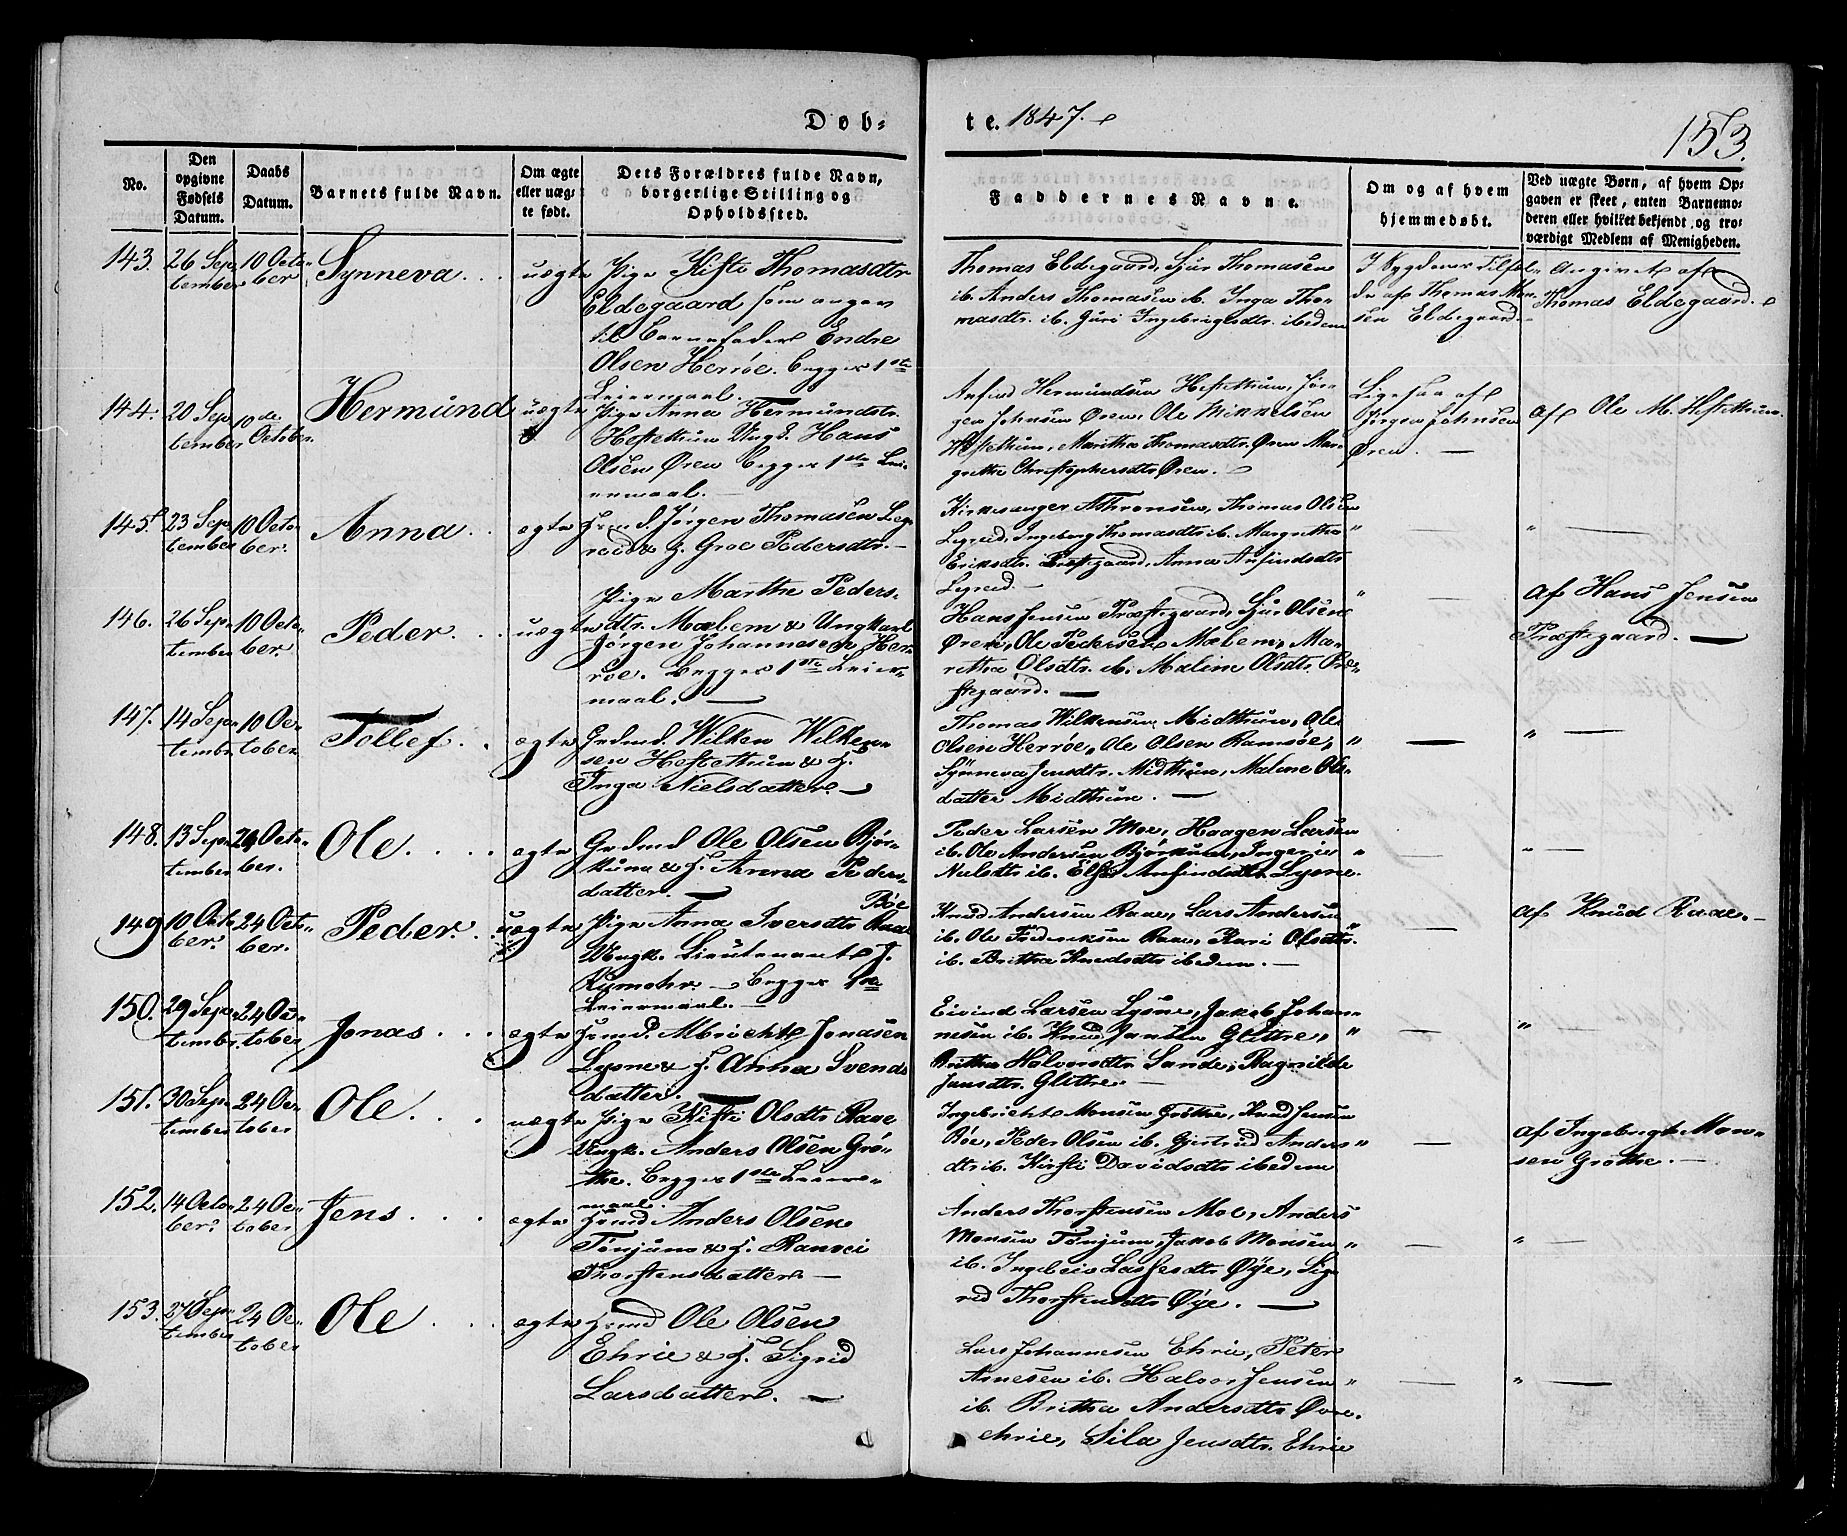 Døb-
te. 1847.
153.
No.
Den opgivne Fødsels Datum.
Daabs Datum.
Barnets fulde Navn.
Om ægte eller uægte født.
Dets Forældres fulde Navn, borgerlige Stilling og Opholdssted.
Faddernes Navne.
Om og af hvem hjemmedøbt.
Ved uægte Børn, af hvem Opgaven er skeet, enten Barnemoderen eller hvilket bekjendt, og troværdigt Medlem af Menigheden.
143. 26 Sep- 10 Octo- Synneva uægte Pige Kisti Thomasdtr
tember ber
Eldegaard som angav
til Barnefader Endre
Olsen Herrøe. Begges 1ste
Leiermaal.
Thomas Eldegaard, Sjur Thomasen
ib. Anders Thomasen ib. Inga Tho-
masdtr. ib. Guri Ingebrigtsdtr. ibedem
Thomas Mon-
sen Eldegaard.
Angivet af
Thomas Eldegaard.
144. 20 Sep- 10de Hermund uægte Pige Anna Hermundsdtr.
tember October.
Hestethun Ungk. Hans
Olsen Øren begges 1ste Lei-
ermaal.
Hermundsen Hestethun, Jør-
gen Johnsen Øren, Ole Mikkelsen
Hestethun, Maritha Thomasdtr. Øren Mar-
grethe Christophersdtr Øren.
Ligesaa af
Jørgen Johnsen
Øren.
af Ole M. Hestethun.
145. 23 Sep- 10 Octo- Anna ægte Jørgen Thomasen Leg-
tember ber.
reid & H. Groe Pedersdtr.
Kirkesanger A Thronsen, Thomas Olsen
Legreid, Ingeborg Thomasdtr ib. Margretha
Eriksdtr. Præstegaard, Anna Anfindsdtr
Legreid.
146. 26 Sep- 10 Octo- Peder uægte Pige Marthe Peders-
tember ber.
dtr. Mælem & Ungkarl
Jørgen Johannesen Her-
røe. Begges 1ste Leier-
maal.
Hans Jensen Præstegaard, Sjur Olsen
Øren, Ole Pedersen Mælem, Ma-
ritha Olsdtr. ib. Maline Olsdtr Præ-
stegaard.
af Hans Jensen
Præstegaard.
147. 14 Sep- 10 Oc- Tollef ægte Grdmd Wilken Wilken-
tember tober
sen Hestethun & H.
Inga Nielsdatter.
Thomas Wilkensen Midthun, Ole
Olsen Herrøe, Ole Olsen Ramsøe,
Synneva Jensdtr. Midthun, Maline Ols-
datter Midthun.
148. 13 Sep- Octo- Ole ægte Grdmd Ole Olsen Bjør-
tember ber.
kum & H. Anna Peders-
datter.
Peder Larsen Moe, Haagen Larsen
ib. Ole Andersen Bjørkum, Ingerie
Nielsdtr ib. Anfindsdtr. Lysne.
149 10 Octo- 24 Octo- Peder uægte Pige Anna Iversdtr Raae
ber. ber.
Bøe
Ungk. Lieutenant J.
Rumohr. Begges 1ste
Leiermaal.
Knud Andersen Raae, Lars Andersen
ib. Ole Frederiksen Raae, Kari Olsdtr.
ib. Brithe Knudsdtr ibedem.
af Knud Raae.
150. 29 Sep- 24 Oc- Jonas ægte Husmd. Albricht Jonasen
tember. tober
Lysne & H. Anna Svends-
datter.
Eivind Larsen Lysne, Jakob Johan-
nesen ib. Knud Jansen Glittre,
Brithe Halvorsdtr Sande, Ragnilde
Jensdtr. Glittre.
151. 30 Sep- 24 Oc- Ole uægte Pige Kisti Olsdtr Raae
tember tober
Ungk. Anders Olsen Grø-
the. Begges 1ste Leier-
maal.
Ingebricht Monsen Grøthe, Knud Jensen
Bøe, Peder Olsen ib. Gjertrud Anders-
dtr ib. Kirsti Davidsdtr ibedem
af Ingebrigt Mon-
sen Grøthe.
152. 14 Octo- 24 Oc- Jens ægte Husmd Anders Olsen
ber. tober
Tønjum & H. Ranvei
Thorstensdatter.
Anders Thorstensen Moe, Anders
Monsen Tønjum, Jakob Monsen
ib. Lassesdtr Øye, Sig-
rid Thorstensdtr Øye.
153. 27 Sep- 24 Oc- Ole ægte Husmd Ole Olsen
tember tober
Ehrie & H. Sigrid
Larsdatter.
Lars Johannesen Ehrie, Peter
Arnesen ib. Halvor Jensen
ib. Britha Andersdtr Øvre-
ehrie, Sila Jensdtr. Ehrie